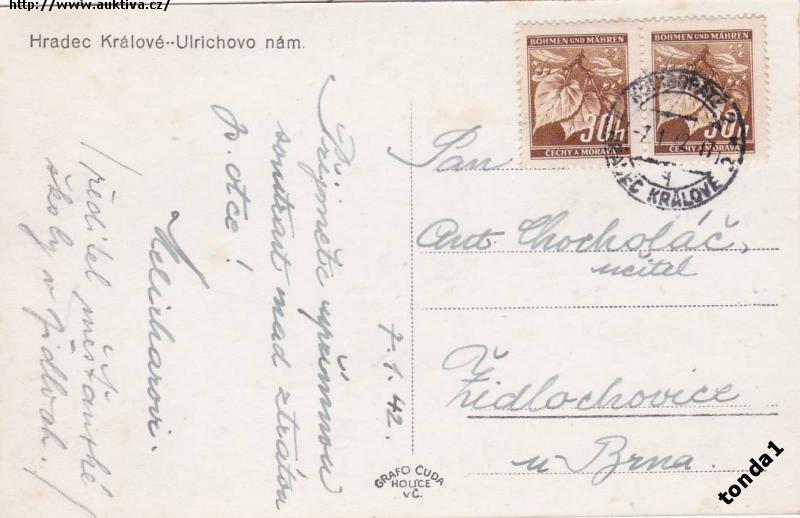 http://www.auktiva.cz/
Hradec Králové--Ulrichovo nám.
Přijměte upřímnou
soustrast nad ztrátou
p. otce!
Melicharovi.
/ředitel měšťanské
školy v Židloch./
7.1.42.
GRAFO ČUDA
HOLICE
v Č.
BÖHMEN UND MÄHREN
30h
ČECHY A MORAVA
BÖHMEN UND MÄHREN
30h
ČECHY A MORAVA
HRADEC KRÁLOVÉ 2
Pan
Ant. Chocholáč,
učitel
Židlochovice
u Brna.
tonda1